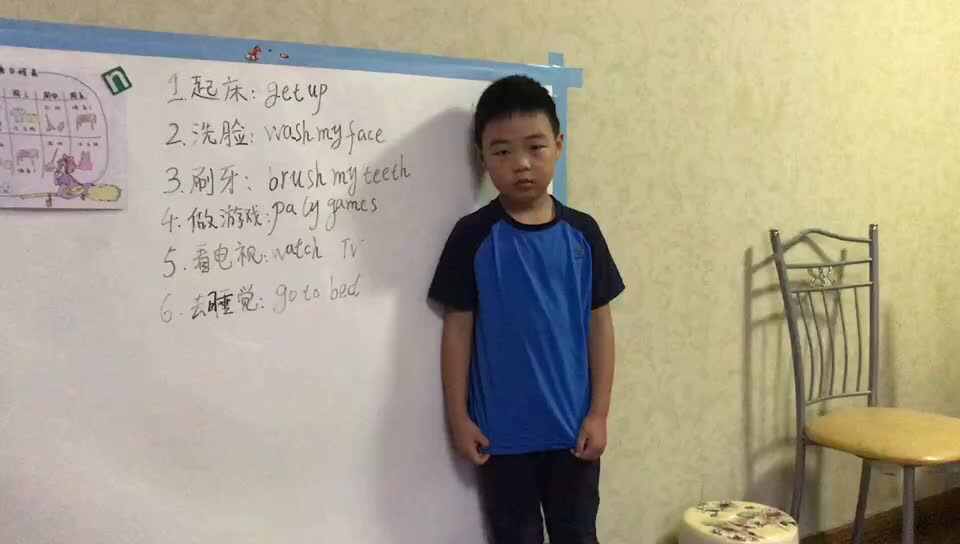 1. 起床: get up
2. 洗脸: wash my face
3. 刷牙: brush my teeth
4. 做游戏: paly games
5. 看电视: watch TV
6. 去睡觉: go to bed
n